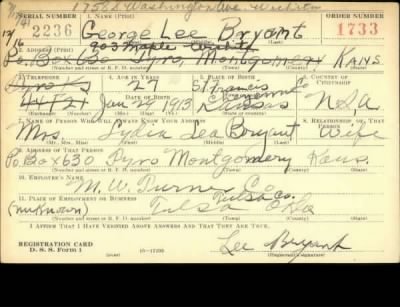 1758 S Washington Ave Wichita
SERIAL NUMBER 1. NAME (Print) ORDER NUMBER
2236 George Lee Bryant 1733
12/16
903 Maple
2. ADDRESS (Print)
P.O. Box 630 Tyro, Montgomery Kans.
3. TELEPHONE 4. AGE IN YEARS 5. PLACE OF BIRTH 6. COUNTRY OF CITIZENSHIP
Tyro Ks 27 St Francis
Cheyenne Co
44F21 Jan 24 1913 Kansas USA
7. NAME OF PERSON WHO WILL ALWAYS KNOW YOUR ADDRESS 8. RELATIONSHIP OF THAT PERSON
Mrs. Lydia Lea Bryant Wife
(Mr., Mrs., Miss) (First) (Middle) (Last)
9. ADDRESS OF THAT PERSON
P.O. Box 630 Tyro Montgomery Kans.
(Number and street or R. F. D. number) (Town) (County) (State)
10. EMPLOYER'S NAME
M. W. Turner Co
11. PLACE OF EMPLOYMENT OR BUSINESS
Tulsa Co.
(unknown) Tulsa Okla
(Number and street or R. F. D. number) (Town) (County) (State)
I AFFIRM THAT I HAVE VERIFIED ABOVE ANSWERS AND THAT THEY ARE TRUE.
REGISTRATION CARD
D. S. S. Form 1 16-17105
Lee Bryant